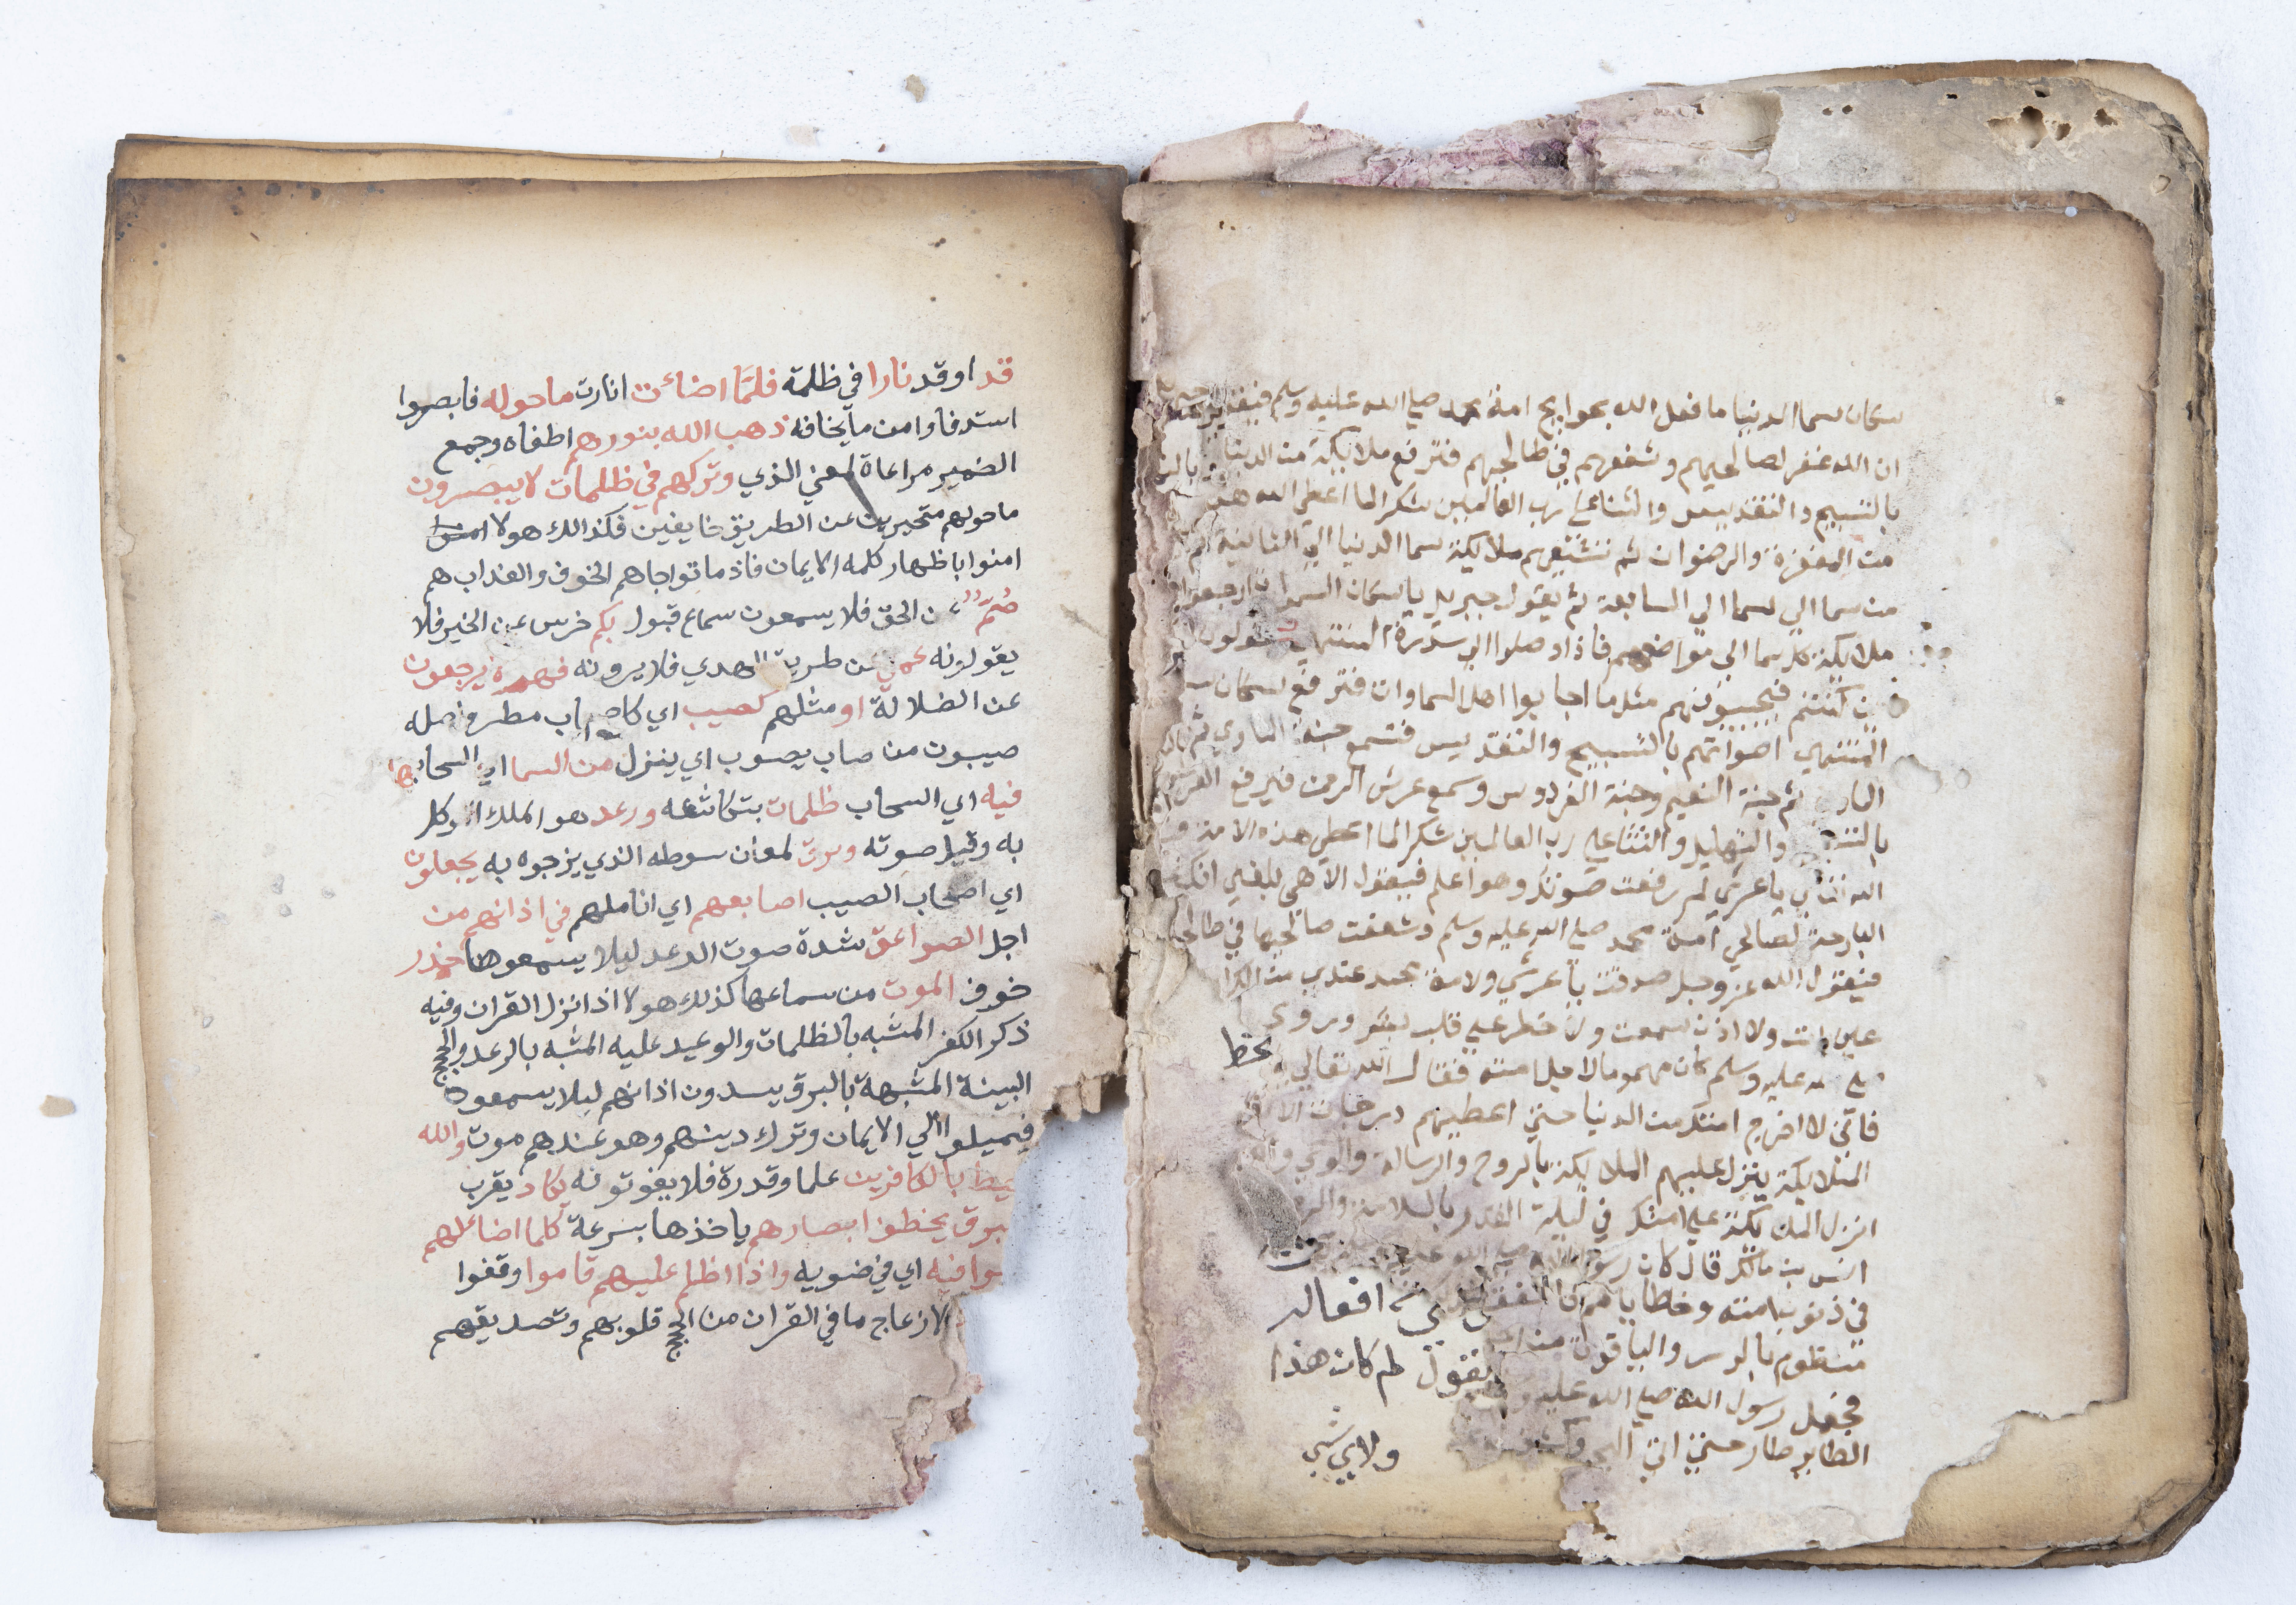 سكان سما الدنيا ما فعل الله بحوايج امة محمد صلي الله عليه وسلم فيقول جبريل
ان الله غفر لصالحيهم وشفعهم في طالحيهم فترفع ملايكة سما الدنيا
بالتسبيح والتقديس والثنا علي رب العالمين شكرا لما اعطي الله هذه
من المغفرة والرضوان ثم تشيعهم ملايكة سما الدنيا الي الثانية ثم
من سما الي سما الي السابعة ثم يقول جبريل يا سكان السموات ارجعوا
ملايكة كل سما الي مواضعهم فاذا وصلوا الي سدرة المنتهي يقولون
كنتم فيجيبونهم مثل ما اجابوا اهل السماوات فترفع سكان
المنتهي اصواتهم بالتسبيح والتقديس فتسمع جنة الماوي ثم
ثم جنة النعيم وجنة الفردوس وسمع عرش الرحمن فيرفع العرش
والتهليل والثنا علي رب العالمين شكرا لما اعطي هذه الامة
الله تعالي يا عرشي لم رفعت صوتك وهو اعلم فيقول الاهي بلغني انك
البارحة لصالحي امة محمد صلي الله عليه وسلم وشفعت صالحيها في طالحيها
فيقول الله عز وجل صدقت يا عرشي ولامة محمد عندي من الكرا
عين رات ولا اذن سمعت ولا خطر علي قلب بشر وروي
عليه وسلم كان مهموما لاجل امته فقال الله تعالي
فاني لا اخرج امتك من الدنيا حتي اعطيهم درجات
الملايكة ينزل عليهم الملايكة بالروح والرسالة والوحي
انزل الملايكة علي امتك في ليلة القدر بالسلام
انس بن مالك قال كان رسول الله صلي الله عليه
في ذنوب امته وخطايا افعاله
منظوم بالدر والياقوت يقول لم كان هذا
فجعل رسول الله صلي الله عليه
الطاير طار حتي اتي البحر ولاي شي
قد اوقد نارا في ظلمة فلما اضائت انارت ما حوله فابصروا
استدفاوا من ما يخافه ذهب الله بنورهم اطفاه وجمع
الضمير مراعاة لمعني الذي وتركهم في ظلمات لا يبصرون
ما حولهم متحيرين عن الطريق خايفين فكذالك هولا
امنوا باظهار كلمه الايمان فاذ ماتوا جاهم الخوف والعذاب هم
صُمّ عن الحق فلا يسمعون سماع قبول بكم خرس عن الخير فلا
يقولونه عمي عن طريق الهدي فلا يرونه فهم لا يرجعون
عن الضلالة او مثلهم كصيب اي كاصحاب مطر واصله
صيبون من صاب يصوب اي ينزل من السما اي السحاب
فيه اي السحاب ظلمات بتكاثفه ورعد هو الملك الموكل
به وقيل صوته وبرق لمعان سوطه الذي يزجوه به يجعلون
اي اصحاب الصيب اصابعهم اي اناملهم في اذانهم من
اجل الصواعق شدة صوت الرعد ليلا يسمعوها حذر
خوف الموت من سماعها كذلك هولا اذا نزل القران وفيه
ذكر الكفر المشبه بالظلمات والوعيد عليه المشبه بالرعد والحجج
البينة المشبهة بالبرق يسدون اذانهم ليلا يسمعوه
فيميلوا الي الايمان وترك دينهم وهو عندهم موت والله
محيط بالكافرين علما وقدرة فلا يفوتونه يكاد يقرب
البرق يخطف ابصارهم ياخذها بسرعة كلما اضا لهم
مشوا فيه اي في ضويه واذا اظلم عليهم قاموا وقفوا
لازعاج ما في القران من الحجج قلوبهم وتصديقهم